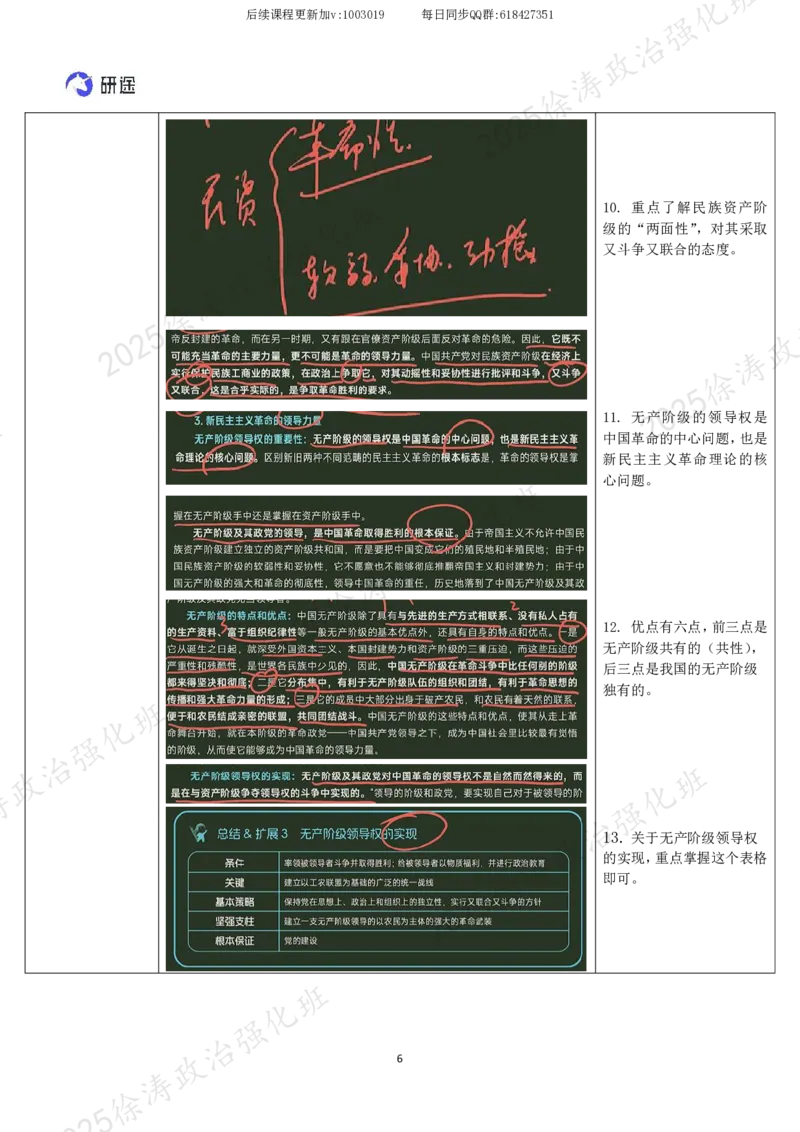 后续课程更新加v:1003019 每日同步QQ群:618427351
研途
民资
革命性
软弱、妥协、动摇
10. 重点了解民族资产阶
级的“两面性”，对其采取
又斗争又联合的态度。
帝反封建的革命，而在另一时期，又有跟在官僚资产阶级后面反对革命的危险。因此，它既不
可能充当革命的主要力量，更不可能是革命的领导力量。中国共产党对民族资产阶级在经济上
实行保护民族工商业的政策，在政治上争取它，对其动摇性和妥协性进行批评和斗争，又斗争
又联合，这是合乎实际的，是争取革命胜利的要求。
3. 新民主主义革命的领导力量
无产阶级领导权的重要性：无产阶级的领导权是中国革命的中心问题，也是新民主主义革
命理论的核心问题。区别新旧两种不同范畴的民主主义革命的根本标志是，革命的领导权是掌
11. 无产阶级的领导权是
中国革命的中心问题，也是
新民主主义革命理论的核
心问题。
握在无产阶级手中还是掌握在资产阶级手中。
无产阶级及其政党的领导，是中国革命取得胜利的根本保证。由于帝国主义不允许中国民
族资产阶级建立独立的资产阶级共和国，而是要把中国变成它们的殖民地和半殖民地；由于中
国民族资产阶级的软弱性和妥协性，它不愿意也不能够彻底推翻帝国主义和封建势力；由于中
国无产阶级的强大和革命的彻底性，领导中国革命的重任，历史地落到了中国无产阶级及其政
无产阶级的特点和优点：中国无产阶级除了具有与先进的生产方式相联系、没有私人占有
的生产资料、富于组织纪律性等一般无产阶级的基本优点外，还具有自身的特点和优点。一是
它从诞生之日起，就深受外国资本主义、本国封建势力和资产阶级的三重压迫，而这些压迫的
严重性和残酷性，是世界各民族中少见的，因此，中国无产阶级在革命斗争中比任何别的阶级
都来得坚决和彻底；二是它分布集中，有利于无产阶级队伍的组织和团结，有利于革命思想的
传播和强大革命力量的形成；三是它的成员中大部分出身于破产农民，和农民有着天然的联系，
便于和农民结成亲密的联盟，共同团结战斗。中国无产阶级的这些特点和优点，使其从走上革
命舞台开始，就在本阶级的革命政党——中国共产党领导之下，成为中国社会里比较最有觉悟
的阶级，从而使它能够成为中国革命的领导力量。
1 2 3
12. 优点有六点，前三点是
无产阶级共有的（共性），
后三点是我国的无产阶级
独有的。
无产阶级领导权的实现：无产阶级及其政党对中国革命的领导权不是自然而然得来的，而
是在与资产阶级争夺领导权的斗争中实现的。“领导的阶级和政党，要实现自己对于被领导的阶
总结 & 扩展 3 无产阶级领导权的实现
条件 率领被领导者斗争并取得胜利；给被领导者以物质福利，并进行政治教育
关键 建立以工农联盟为基础的广泛的统一战线
基本策略 保持党在思想上、政治上和组织上的独立性，实行又联合又斗争的方针
坚强支柱 建立一支无产阶级领导的以农民为主体的强大的革命武装
根本保证 党的建设
13. 关于无产阶级领导权
的实现，重点掌握这个表格
即可。
6
2025徐涛政治强化班